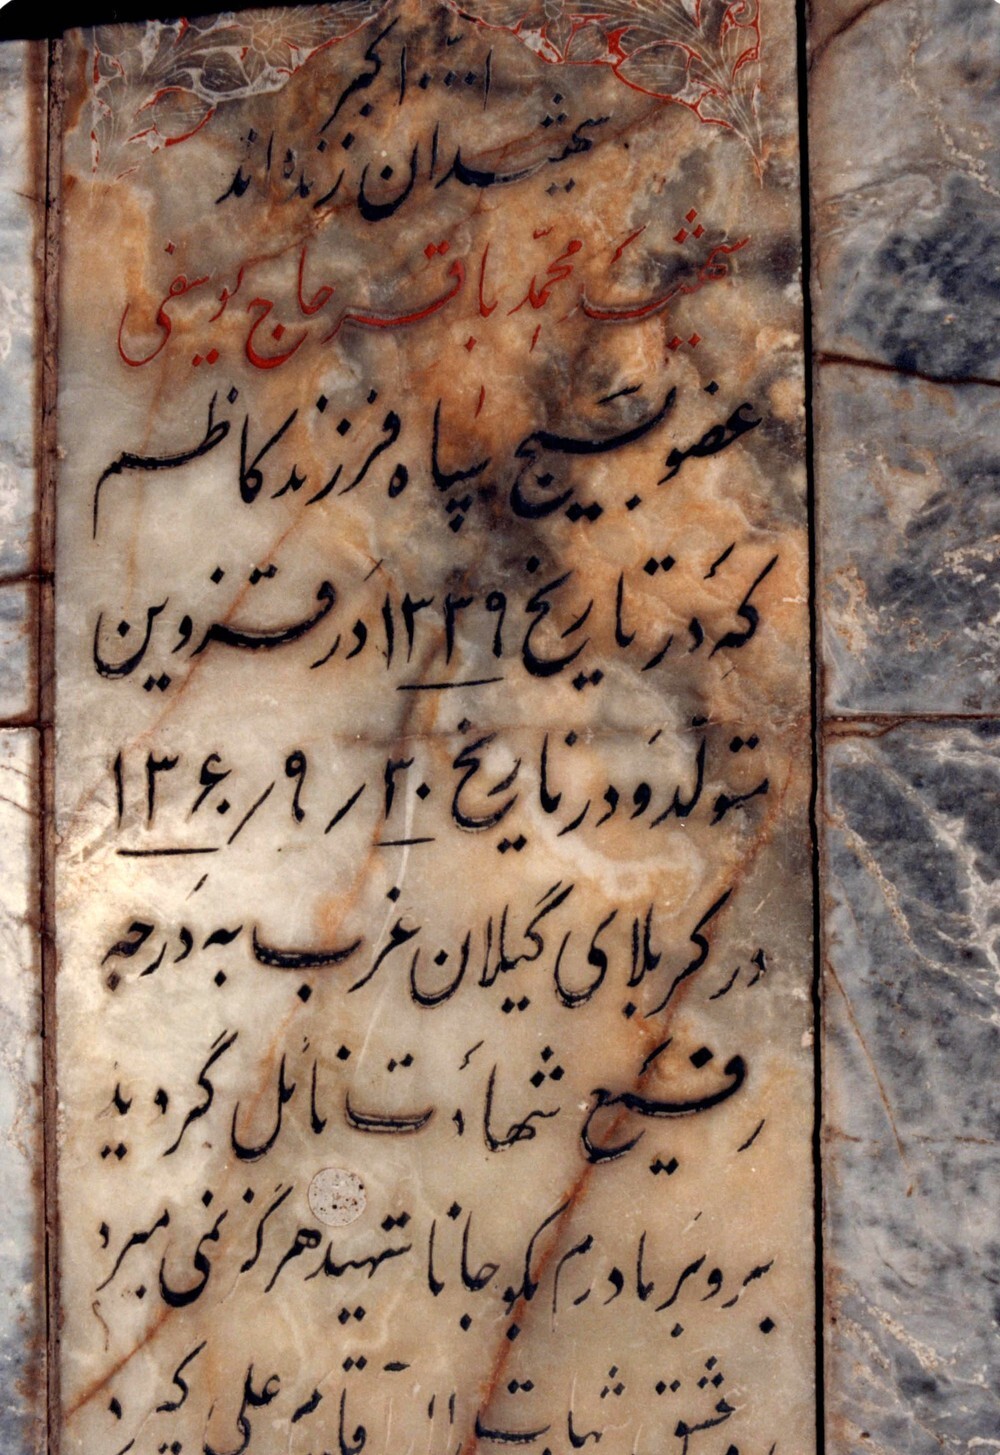 الله اکبر
شهیدان زنده‌اند
شهید محمد باقر حاج یوسفی
عضو بسیج سپاه فرزند کاظم
که در تاریخ ۱۳۳۹ در قزوین
متولد و در تاریخ ۳۰/۹/۱۳۶۰
در کربلای گیلان غرب به درجه
رفیع شهادت نائل گردید
برو بر مادرم بگو جانا شهید هرگز نمی میرد
عشق شهادت از علی گیرد